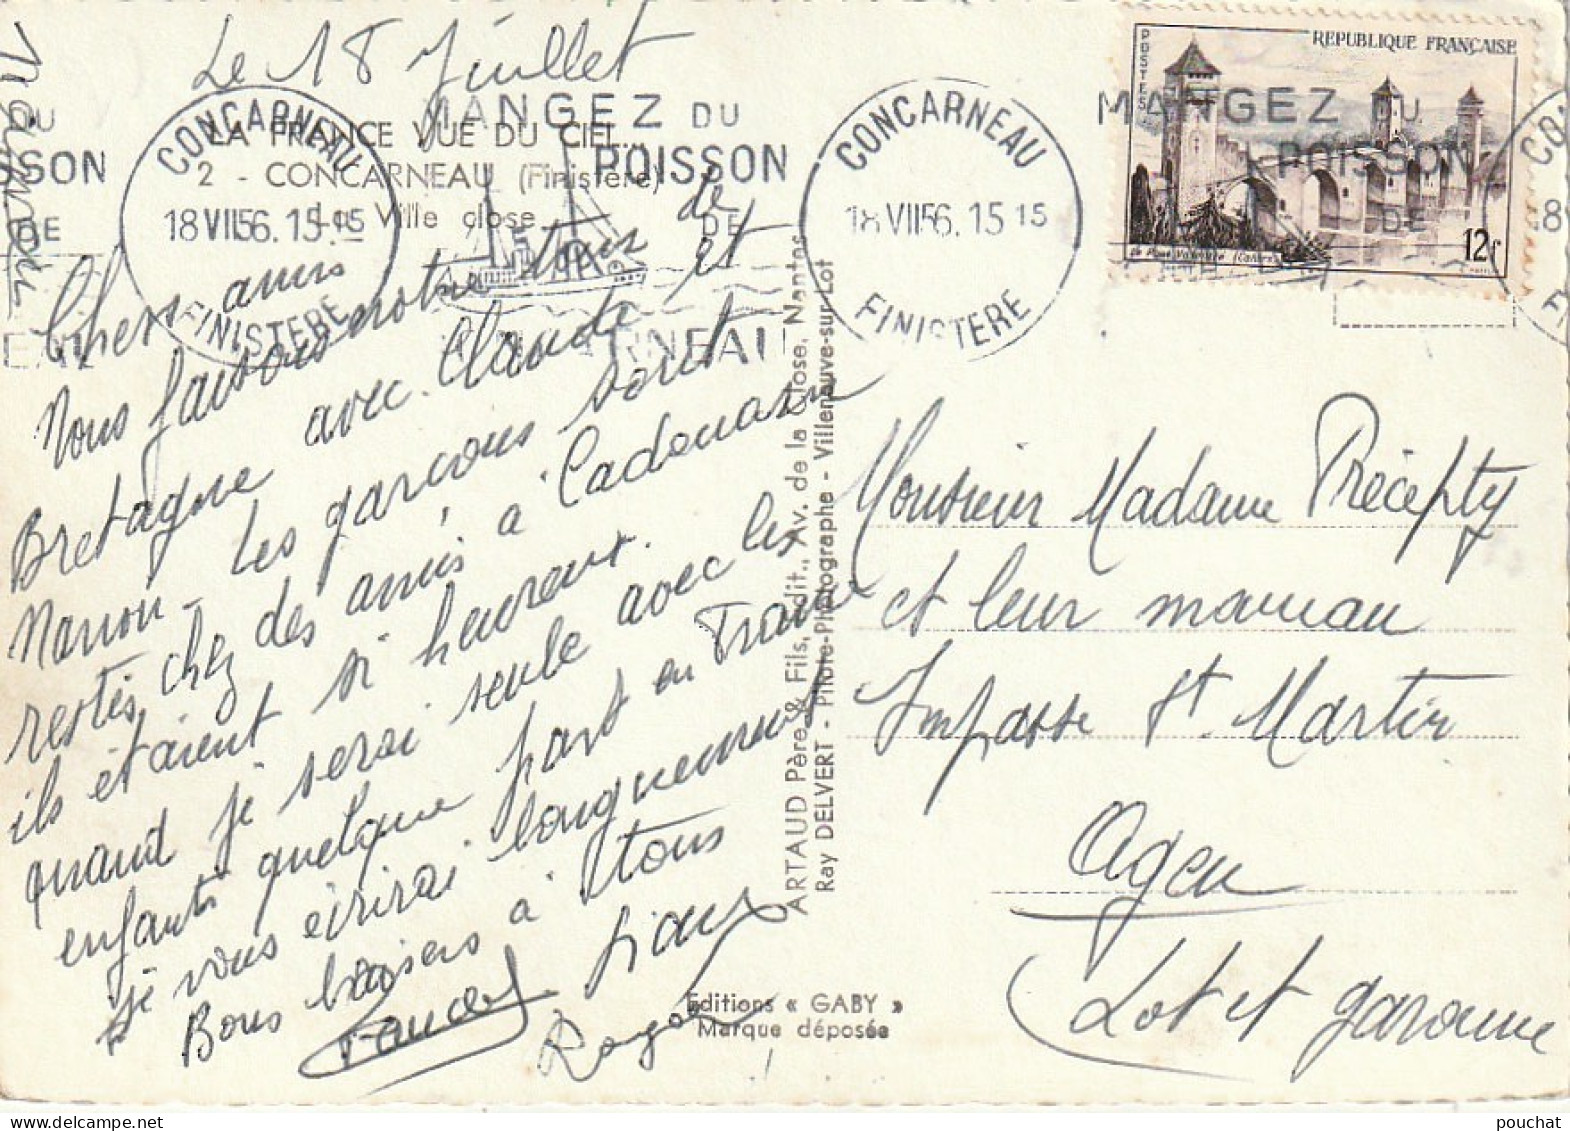 Le 18 Juillet
LA FRANCE VUE DU CIEL...
2 - CONCARNEAU (Finistère)
La Ville close
CONCARNEAU
18 VII 56. 15 15
FINISTERE
MANGEZ DU
POISSON
DE
CONCARNEAU
18 VII 56. 15 15
FINISTERE
MANGEZ DU
POISSON
DE
REPUBLIQUE FRANÇAISE
POSTES
12f
Le Pont Valentré (Cahors)
Chers amis
Nous faisons notre tour de
Bretagne avec Claude et
Manou - Les garçons sont
restés chez des amis à Cadouarn
ils étaient si heureux.
quand je serai seule avec les
enfants quelque part en France
je vous écrirai longuement
Bons baisers à tous
ARTAUD Père & Fils, Edit., Av. de la Close, Nantes
Ray DELVERT - Pilote-Photographe - Villeneuve-sur-Lot
Editions « GABY »
Marque déposée
Monsieur Madame Précepty
et leur maman
Impasse St. Martin
Agen
Lot et Garonne
pouchat